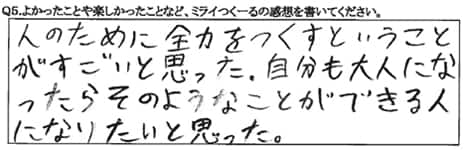 Q5.よかったことや楽しかったことなど、ミライつくーるの感想を書いてください。
人のために全力をつくすということ
がすごいと思った。自分も大人にな
ったらそのようなことができる人
になりたいと思った。